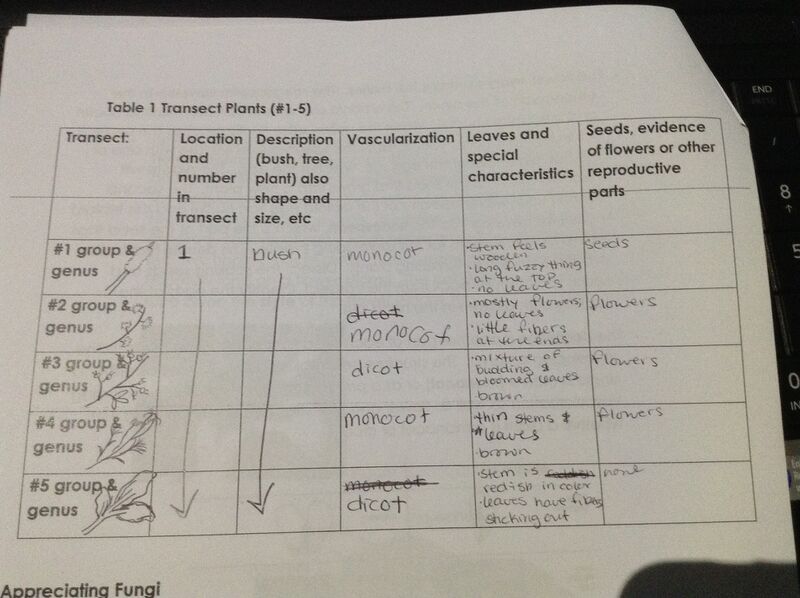 Table 1 Transect Plants (#1-5)
Transect:
Location
and
number
in
transect
Description
(bush, tree,
plant) also
shape and
size, etc
Vascularization
Leaves and
special
characteristics
Seeds, evidence
of flowers or other
reproductive
parts
#1 group &
genus
1
bush
monocot
·stem feels
wooden
·long fuzzy thing
at the top
·no leaves
seeds
#2 group &
genus
dicot
monocot
·mostly flowers,
no leaves
·little fibers
at the ends
flowers
#3 group &
genus
dicot
·mixture of
budding &
bloomed leaves
brown
flowers
#4 group &
genus
monocot
·thin stems &
leaves
·brown
flowers
#5 group &
genus
monocot
dicot
·stem is
redish in color
·leaves have fibers
sticking out
none
Appreciating Fungi
END
8
5
0